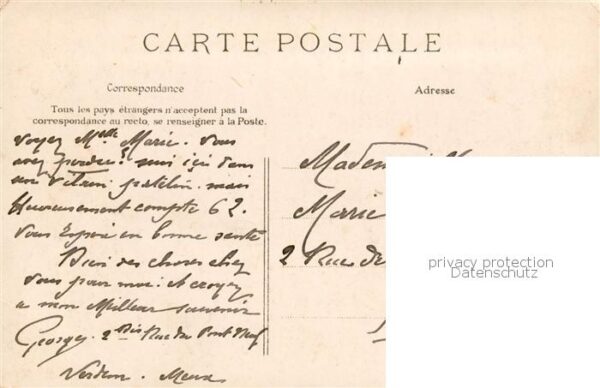 CARTE POSTALE
Correspondance
Adresse
Tous les pays étrangers n'acceptent pas la
correspondance au recto, se renseigner à la Poste.
Voyez Melle Marie. Vous
avez
mais
heureusement compte 62.
Vous Espère en bonne santé
Bien des choses chez
vous pour moi: et croyez
a mon Meilleur souvenir
Georges. 2 Bis Rue du Pont Neuf
Verdun. Meuse
Marie
2 Rue de
privacy protection
Datenschutz